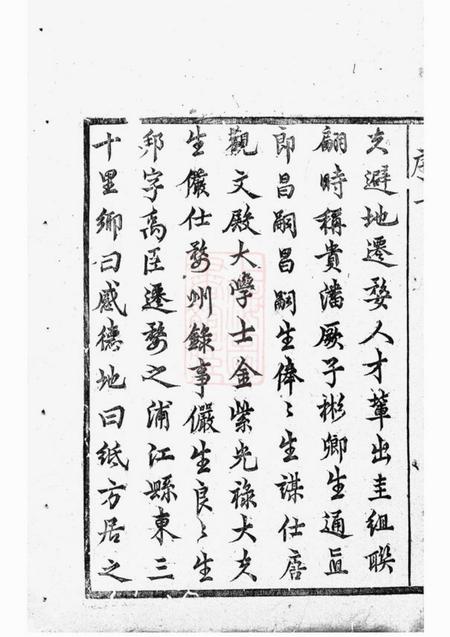 序一
夫避地遷婺人才輩出圭組聯
翩時稱貴潘厥子彬卿生通直
郎昌嗣昌嗣生俸〻生謀仕唐
觀文殿大學士金紫光祿大夫
生儼仕婺州錄事儼生良〻生
邦字高臣遷婺之浦江縣東三
十里鄉曰感德地曰紙方居之